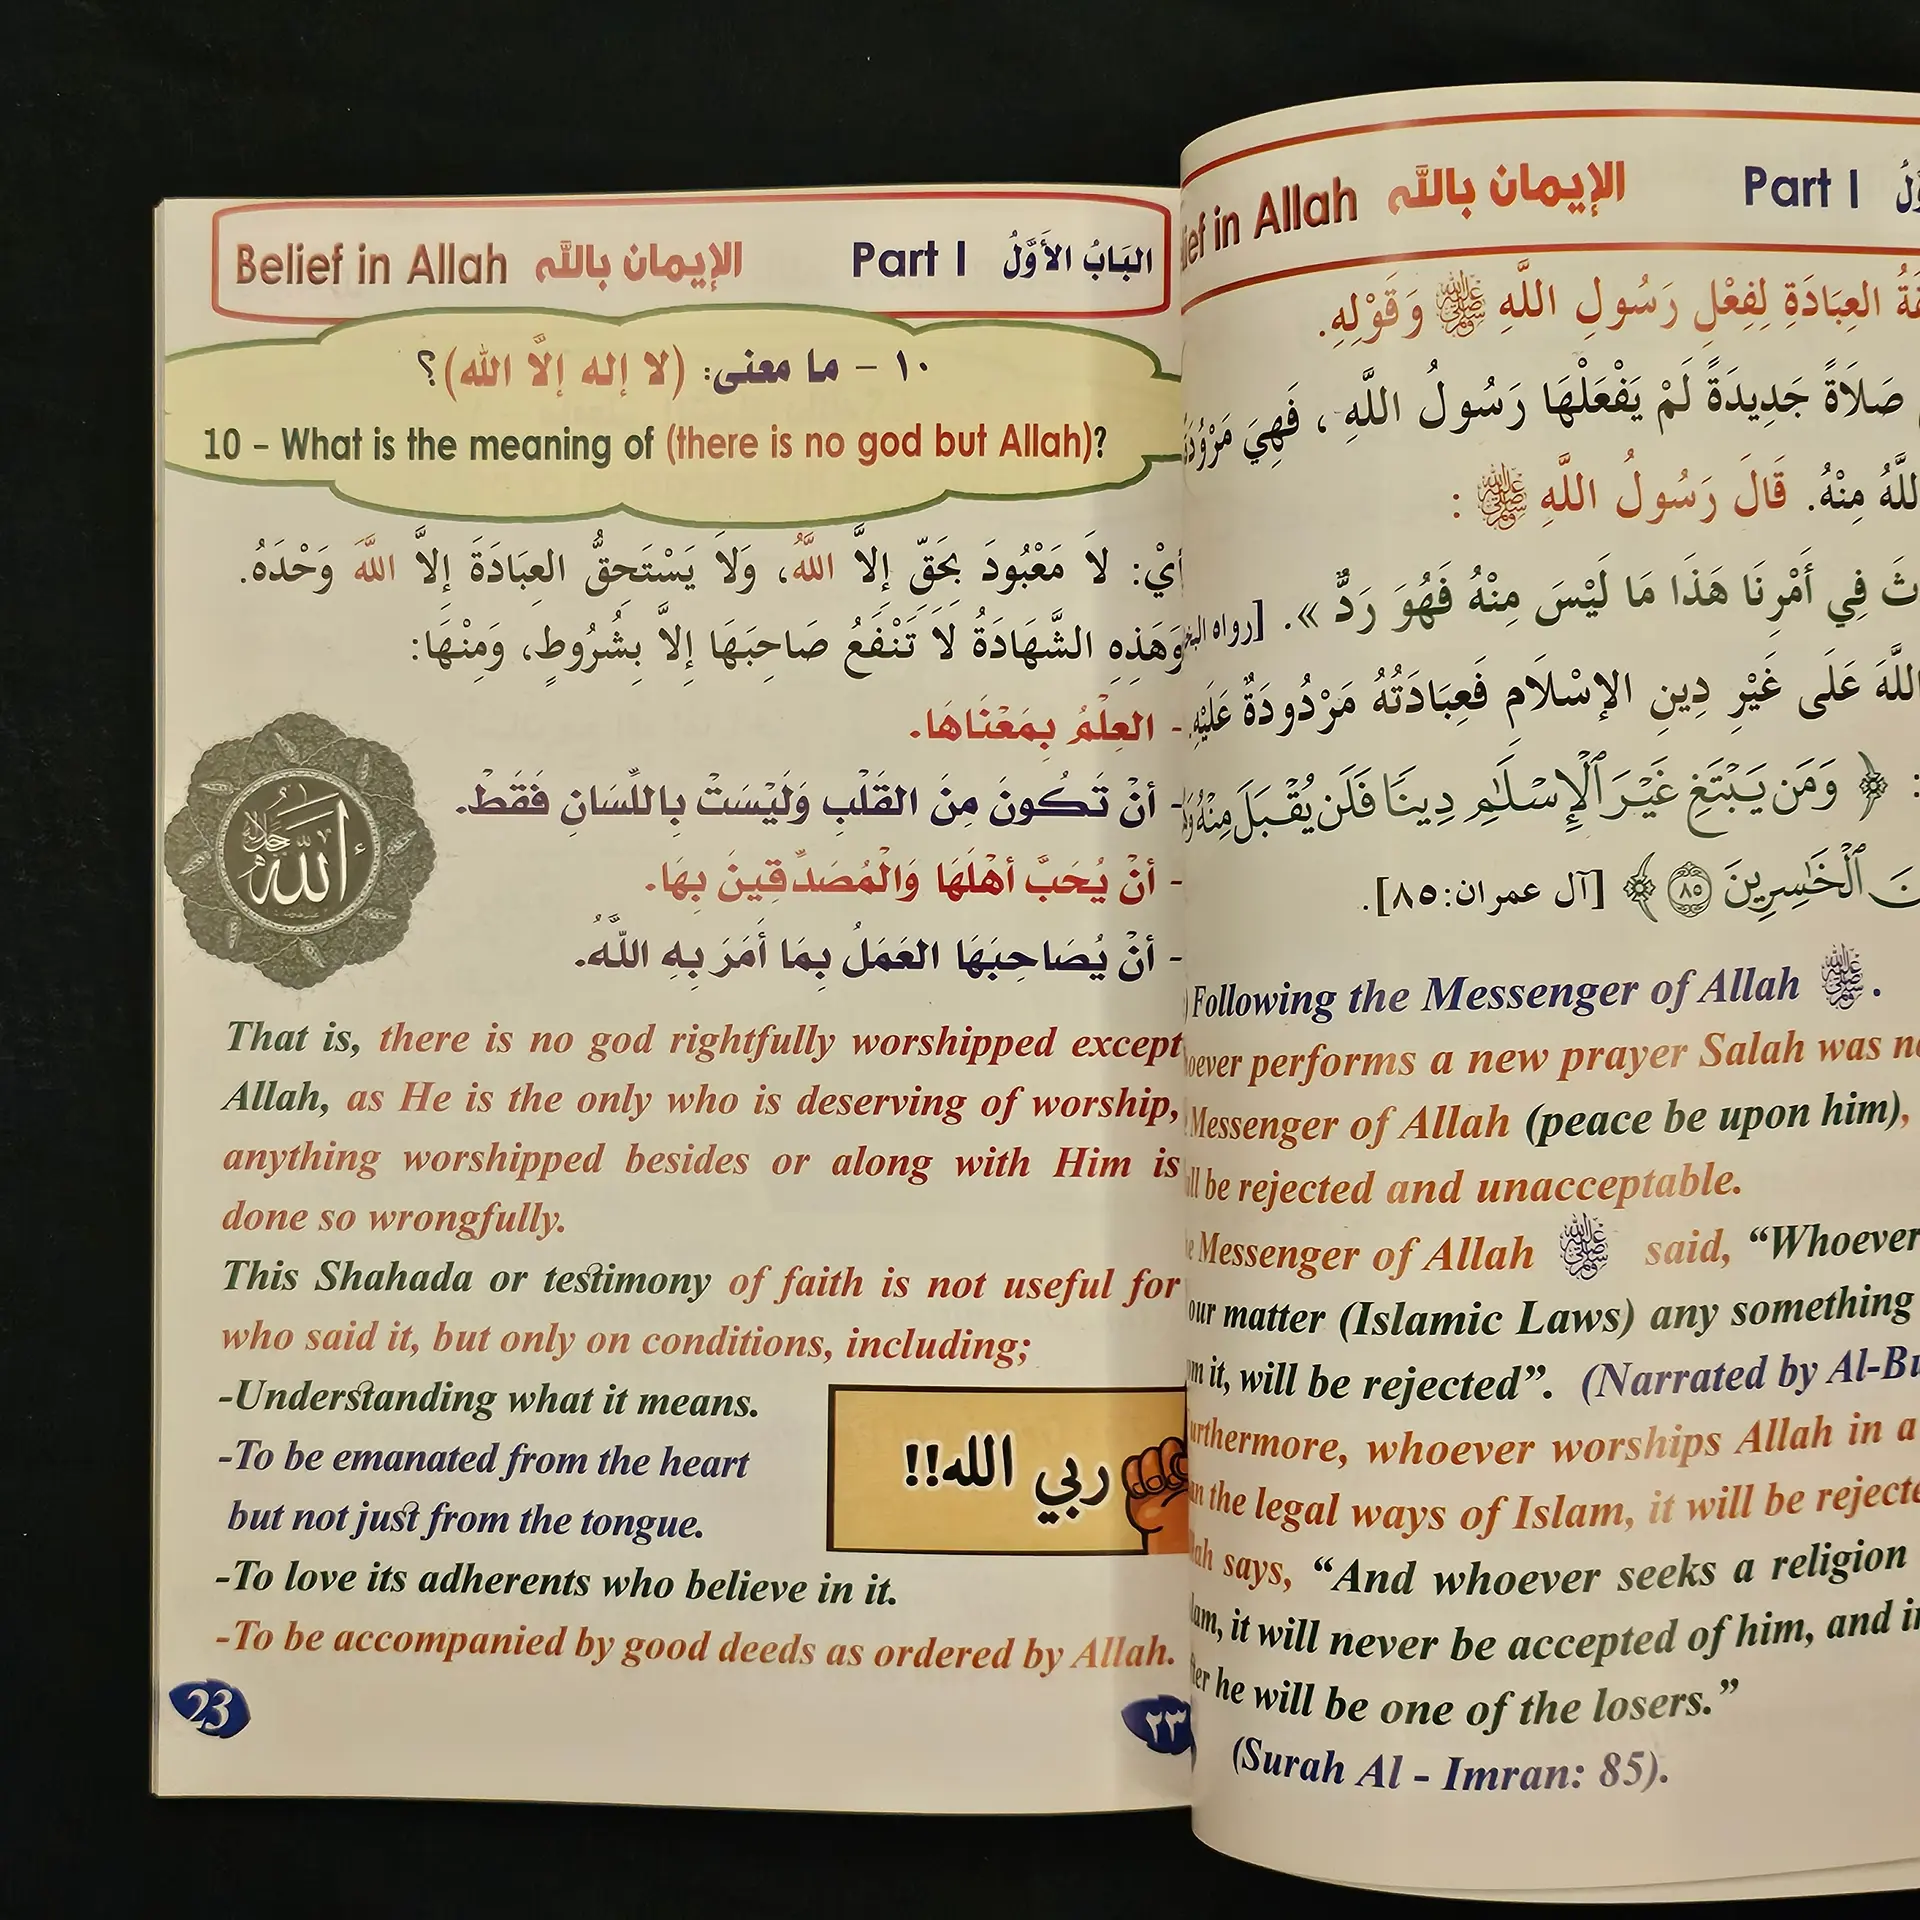 Belief in Allah الإيمان بالله Part I البَابُ الأَوَّلُ
١٠ - ما معنى: (لا إله إلَّا الله)؟
10 – What is the meaning of (there is no god but Allah)?
أيْ: لاَ مَعْبُودَ بِحَقّ إلاَّ اللَّهُ، وَلاَ يَسْتَحِقُّ العِبَادَةَ إلاَّ اللَّهَ وَحْدَهُ.
وَهَذِهِ الشَّهَادَةُ لاَ تَنْفَعُ صَاحِبَهَا إلاَّ بِشُرُوطٍ، وَمِنْهَا:
- العِلْمُ بِمَعْنَاهَا.
- أنْ تَكُونَ مِنَ القَلْبِ وَلَيْسَتْ بِاللّسَانِ فَقَطْ.
- أنْ يُحَبَّ أهْلَهَا وَالْمُصَدّقِينَ بِهَا.
- أنْ يُصَاحِبَهَا العَمَلُ بِمَا أَمَرَ بِهِ اللَّهُ.
الله جل جلاله
That is, there is no god rightfully worshipped except
Allah, as He is the only who is deserving of worship,
anything worshipped besides or along with Him is
done so wrongfully.
This Shahada or testimony of faith is not useful for
who said it, but only on conditions, including;
-Understanding what it means.
-To be emanated from the heart
but not just from the tongue.
-To love its adherents who believe in it.
-To be accompanied by good deeds as ordered by Allah.
ربي الله!!
23
٢٣
in Allah الإيمان بالله Part I
العِبَادَةِ لِفِعْلِ رَسُولِ اللَّهِ ﷺ وَقَوْلِهِ.
صَلاَةً جَدِيدَةً لَمْ يَفْعَلْهَا رَسُولُ اللَّهِ ، فَهِيَ
مِنْهُ. قَالَ رَسُولُ اللَّهِ ﷺ :
فِي أَمْرِنَا هَذَا مَا لَيْسَ مِنْهُ فَهُوَ رَدٌّ ». [رواه
عَلَى غَيْرِ دِينِ الإسْلَامِ فَعِبَادَتُهُ مَرْدُودَةٌ عَلَيْهِ
: ﴿ وَمَن يَبْتَغِ غَيْرَ ٱلْإِسْلَٰمِ دِينًا فَلَن يُقْبَلَ مِنْهُ
ٱلْخَٰسِرِينَ ٨٥ ﴾ [آل عمران:٨٥].
) Following the Messenger of Allah ﷺ.
performs a new prayer Salah was
Messenger of Allah (peace be upon him),
be rejected and unacceptable.
Messenger of Allah ﷺ said, “Whoever
our matter (Islamic Laws) any something
it, will be rejected”. (Narrated by
whoever worships Allah in a
the legal ways of Islam, it will be
says, “And whoever seeks a religion
it will never be accepted of him, and
he will be one of the losers.”
(Surah Al - Imran: 85).